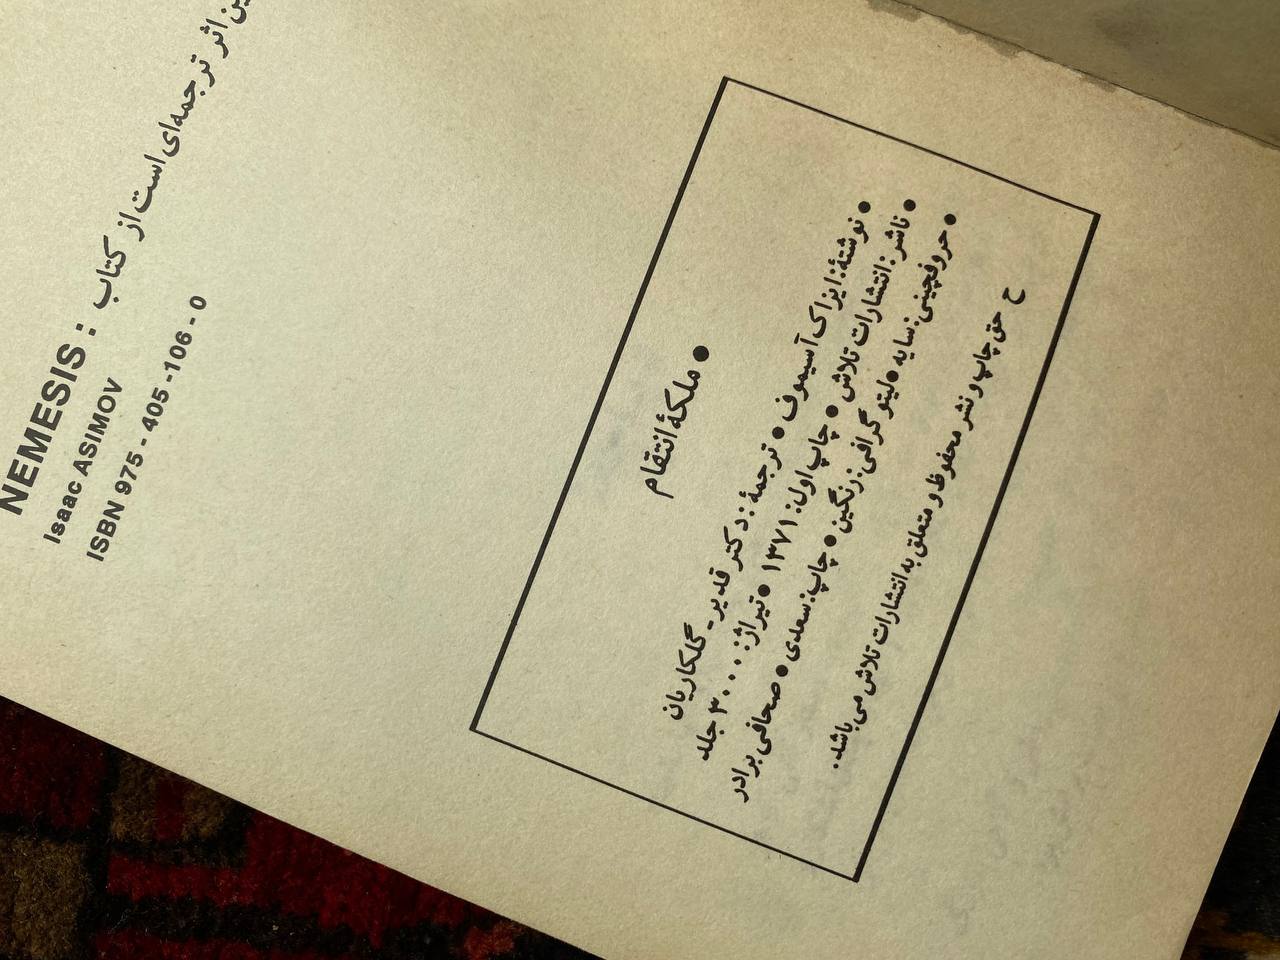 ین اثر ترجمه‌ای است از کتاب :
NEMESIS
Isaac ASIMOV
ISBN 975 - 405 -106 - 0
● ملکهٔ انتقام
● نوشتهٔ: ایزاک آسیموف ● ترجمهٔ: دکتر قدیر - گلکاریان
● ناشر: انتشارات تلاش ● چاپ اول: ۱۳۷۱ ● تیراژ: ۳۰۰۰ جلد
● حروفچینی: سایه ● لیتوگرافی: رنگین ● چاپ: سعدی ● صحافی برادر
ح حق چاپ و نشر محفوظ و متعلق به انتشارات تلاش می‌باشد.